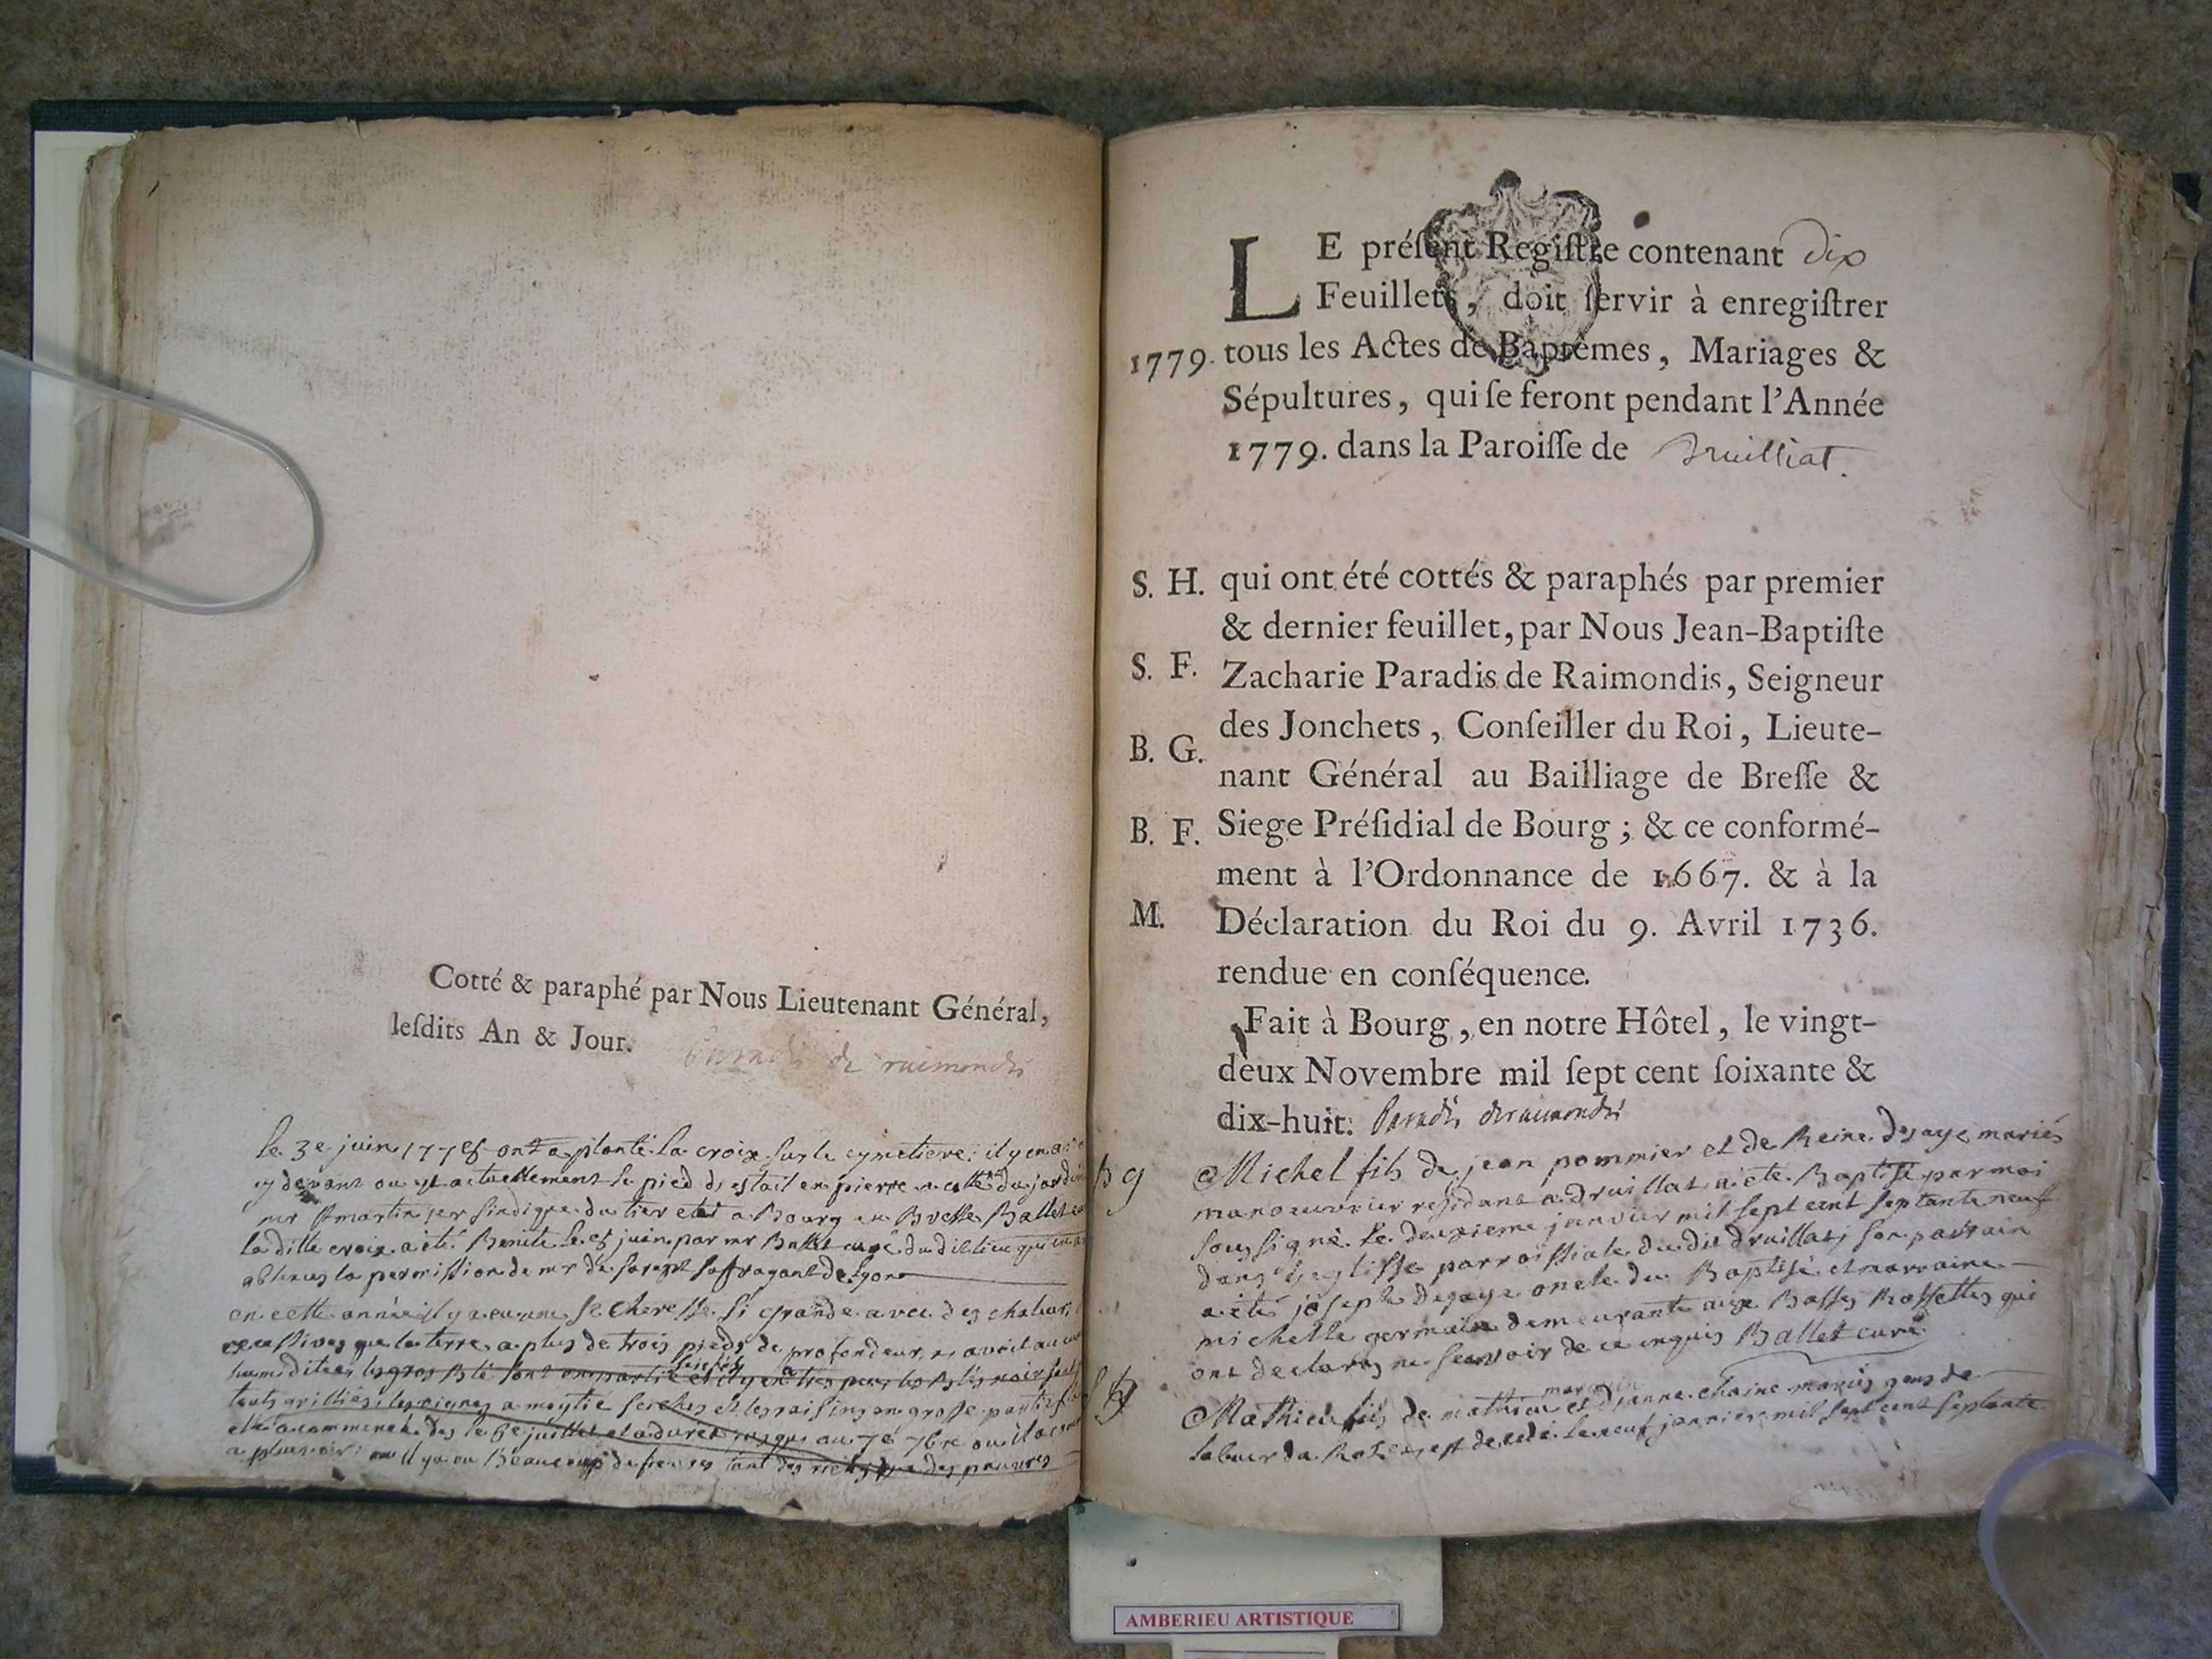 Cotté & paraphé par Nous Lieutenant Général,
leſdits An & Jour. Paradis de raimondis
le 3e juin 1778 ont a planté la croix sur le cymetiere; il y en a
cy devant ou est actuellement le pied d'estail en pierre du jardin
mr St martin sindique du tier etat a Bourg en Bresse Ballet
la ditte croix a été Benite le juin par mr Ballet curé du dit lieu qui en a
obtenus la permission de mr de sarept sofragant de Lyon
en cette année il y a eu une secheresse si grande avec des chaleurs
excessives que la terre a plus de trois pieds de profondeur, n'avoit aucune
humidité, les gros Blé sont en partie les Blés noir
touts grilliés, les vignes a moytié seiches et les raisins en grosse partie
elle a commencé des le 6e juillet et a duré jusque au 7e 7bre ou il a
a pleuvoir; il y a eu Beaucoup de tant des riches que des pauvres
LE préſent Regiſtre contenant dix
Feuillets, doit ſervir à enregiſtrer
1779. tous les Actes de Baptêmes, Mariages &
Sépultures, qui ſe feront pendant l'Année
1779. dans la Paroiſſe de Druilliat.
S. H. qui ont été cottés & paraphés par premier
& dernier feuillet, par Nous Jean-Baptiſte
S. F. Zacharie Paradis de Raimondis, Seigneur
des Jonchets, Conſeiller du Roi, Lieute-
B. G. nant Général au Bailliage de Breſſe &
B. F. Siege Préſidial de Bourg; & ce conformé-
ment à l'Ordonnance de 1667. & à la
M. Déclaration du Roi du 9. Avril 1736.
rendue en conſéquence.
Fait à Bourg, en notre Hôtel, le vingt-
deux Novembre mil ſept cent ſoixante &
dix-huit. Paradis deraimondis
B g Michel fils de jean pommier et de Reine degaye mariés
manoeuvrier residans a druillat a été Baptisé par moi
soussigné le deuxieme janvier mil sept cent septante neuf
dans l'eglisse parroissiale du dit druillat; son parrain
a été joseph degaye oncle du Baptisé et marraine
michelle germain demeurante aux Basses Rossettes qui
ont declarés ne sçavoir de ce enquis Ballet curé
Mathieu fils de mathieu et djanne chaine mariés gens de
labeur da est decedé le neuf janvier mil sept cent septante
AMBERIEU ARTISTIQUE